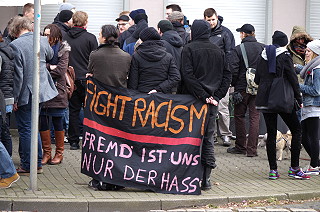 FIGHT RACISM
FREMD IST UNS
NUR DER HASS